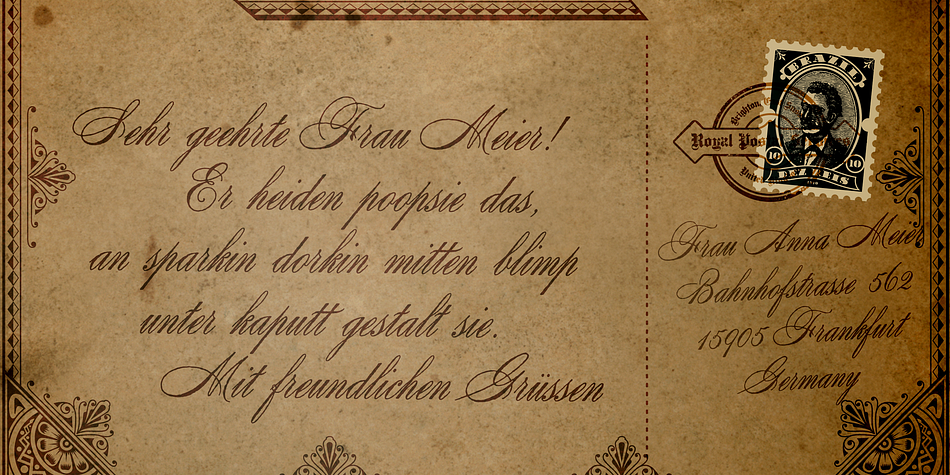 Sehr geehrte Frau Meier!
Er heiden poopsie das,
an sparkin dorkin mitten blimp
unter kaputt gestalt sie.
Mit freundlichen Grüssen
BRAZIL
Brighton,
Royal Pos
10 10
DEZ REIS
Frau Anna Meier
Bahnhofstrasse 562
15905 Frankfurt
Germany